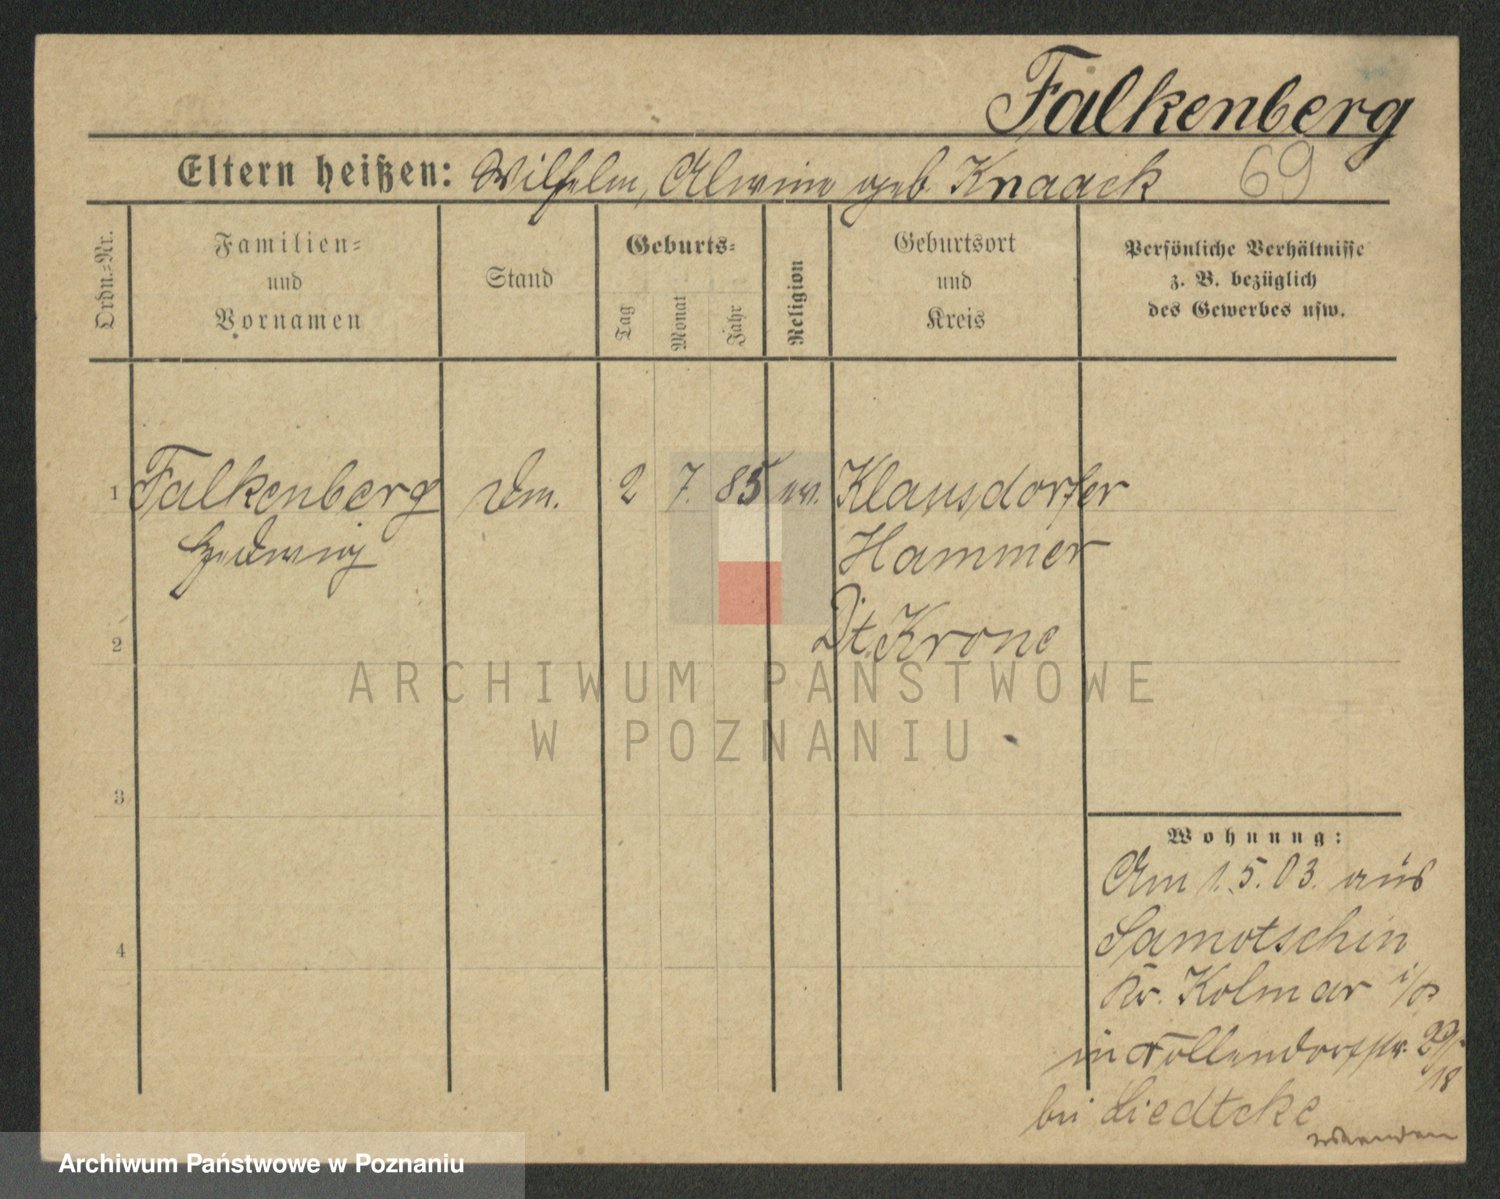 Falkenberg
Eltern heißen: Wilhelm, Alwine geb. Knaack
69
Ordn.-Nr.
Familien-
und
Vornamen
Stand
Geburts-
Tag
Monat
Jahr
Religion
Geburtsort
und
Kreis
Persönliche Verhältnisse
z. B. bezüglich
des Gewerbes usw.
1 Falkenberg
Hedwig
2 7. 85 ev. Klausdorfer
Hammer
Dt. Krone
2
3
4
ARCHIWUM PAŃSTWOWE
W POZNANIU
Wohnung:
Am 1.5.03. aus
Samotschin
Kr. Kolmar i/P
in
bei Liedtcke
wenden
Archiwum Państwowe w Poznaniu